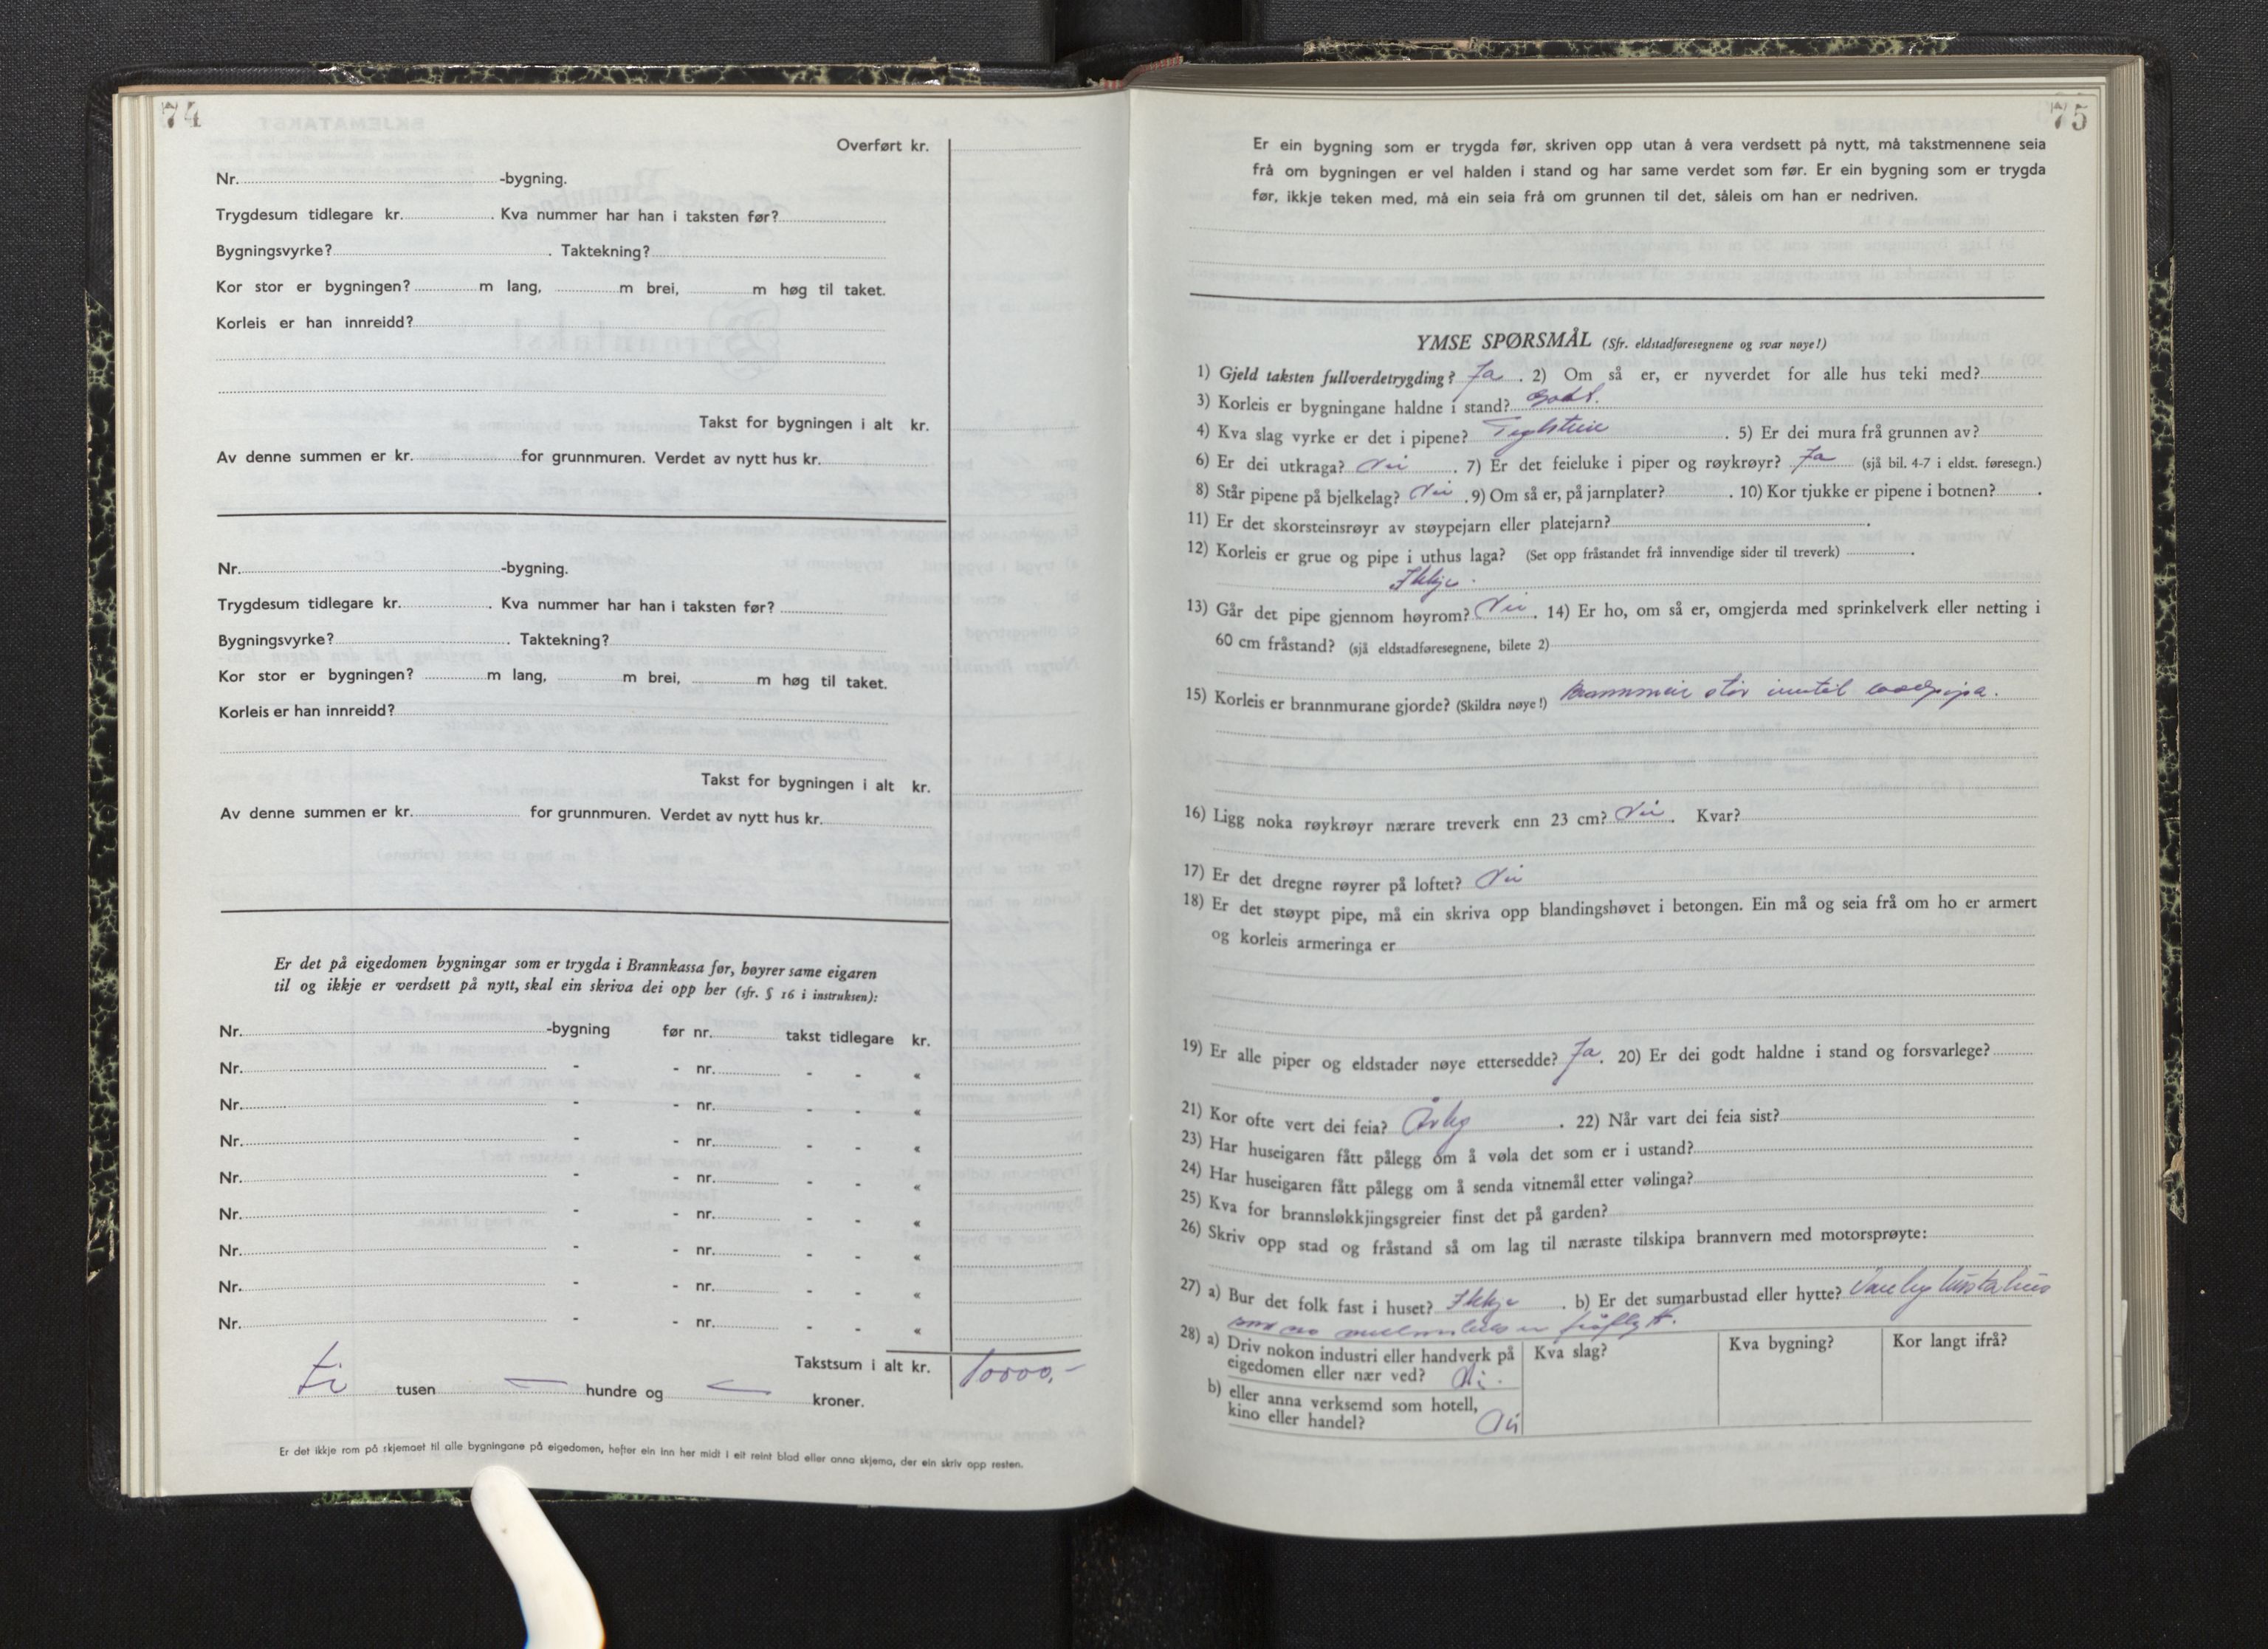 74
Overført kr.
Nr. -bygning.
Trygdesum tidlegare kr. . Kva nummer har han i taksten før?
Bygningsvyrke? . Taktekning?
Kor stor er bygningen? m lang, m brei, m høg til taket.
Korleis er han innreidd?
Takst for bygningen i alt kr.
Av denne summen er kr. for grunnmuren. Verdet av nytt hus kr.
Nr. -bygning.
Trygdesum tidlegare kr. . Kva nummer har han i taksten før?
Bygningsvyrke? . Taktekning?
Kor stor er bygningen? m lang, m brei, m høg til taket.
Korleis er han innreidd?
Takst for bygningen i alt kr.
Av denne summen er kr. for grunnmuren. Verdet av nytt hus kr.
Er det på eigedomen bygningar som er trygda i Brannkassa før, høyrer same eigaren
til og ikkje er verdsett på nytt, skal ein skriva dei opp her (sfr. § 16 i instruksen):
Nr. -bygning før nr. takst tidlegare kr.
Nr. - - nr. - - «
Nr. - - nr. - - «
Nr. - - nr. - - «
Nr. - - nr. - - «
Nr. - - nr. - - «
Nr. - - nr. - - «
Nr. - - nr. - - «
Nr. - - nr. - - «
Takstsum i alt kr. 10000,-
ti tusen — hundre og — kroner.
Er det ikkje rom på skjemaet til alle bygningane på eigedomen, hefter ein inn her midt i eit reint blad eller anna skjema, der ein skriv opp resten.
75
Er ein bygning som er trygda før, skriven opp utan å vera verdsett på nytt, må takstmennene seia
frå om bygningen er vel halden i stand og har same verdet som før. Er ein bygning som er trygda
før, ikkje teken med, må ein seia frå om grunnen til det, såleis om han er nedriven.
YMSE SPØRSMÅL (Sfr. eldstadføresegnene og svar nøye!)
1) Gjeld taksten fullverdetrygding? Ja . 2) Om så er, er nyverdet for alle hus teki med?
3) Korleis er bygningane haldne i stand? Godt.
4) Kva slag vyrke er det i pipene? Teglstein . 5) Er dei mura frå grunnen av?
6) Er dei utkraga? Nei . 7) Er det feieluke i piper og røykrøyr? Ja (sjå bil. 4-7 i eldst. føresegn.)
8) Står pipene på bjelkelag? Nei . 9) Om så er, på jarnplater? . 10) Kor tjukke er pipene i botnen? .
11) Er det skorsteinsrøyr av støypejarn eller platejarn? .
12) Korleis er grue og pipe i uthus laga? (Set opp fråstandet frå innvendige sider til treverk) .
Ikkje.
13) Går det pipe gjennom høyrom? Nei . 14) Er ho, om så er, omgjerda med sprinkelverk eller netting i
60 cm fråstand? (sjå eldstadføresegnene, bilete 2)
15) Korleis er brannmurane gjorde? (Skildra nøye!) Brannmur står inntil
16) Ligg noka røykrøyr nærare treverk enn 23 cm? Nei . Kvar?
17) Er det dregne røyrer på loftet? Nei
18) Er det støypt pipe, må ein skriva opp blandingshøvet i betongen. Ein må og seia frå om ho er armert
og korleis armeringa er
19) Er alle piper og eldstader nøye ettersedde? Ja. 20) Er dei godt haldne i stand og forsvarlege?
21) Kor ofte vert dei feia? Årleg . 22) Når vart dei feia sist?
23) Har huseigaren fått pålegg om å vøla det som er i ustand?
24) Har huseigaren fått pålegg om å senda vitnemål etter vølinga?
25) Kva for brannsløkkjingsgreier finst det på garden?
26) Skriv opp stad og fråstand så om lag til næraste tilskipa brannvern med motorsprøyte:
27) a) Bur det folk fast i huset? Ikkje . b) Er det sumarbustad eller hytte?
er fråflytt.
28) a) Driv nokon industri eller handverk på
eigedomen eller nær ved? Nei.
Kva slag? Kva bygning? Kor langt ifrå?
b) eller anna verksemd som hotell,
kino eller handel? Nei